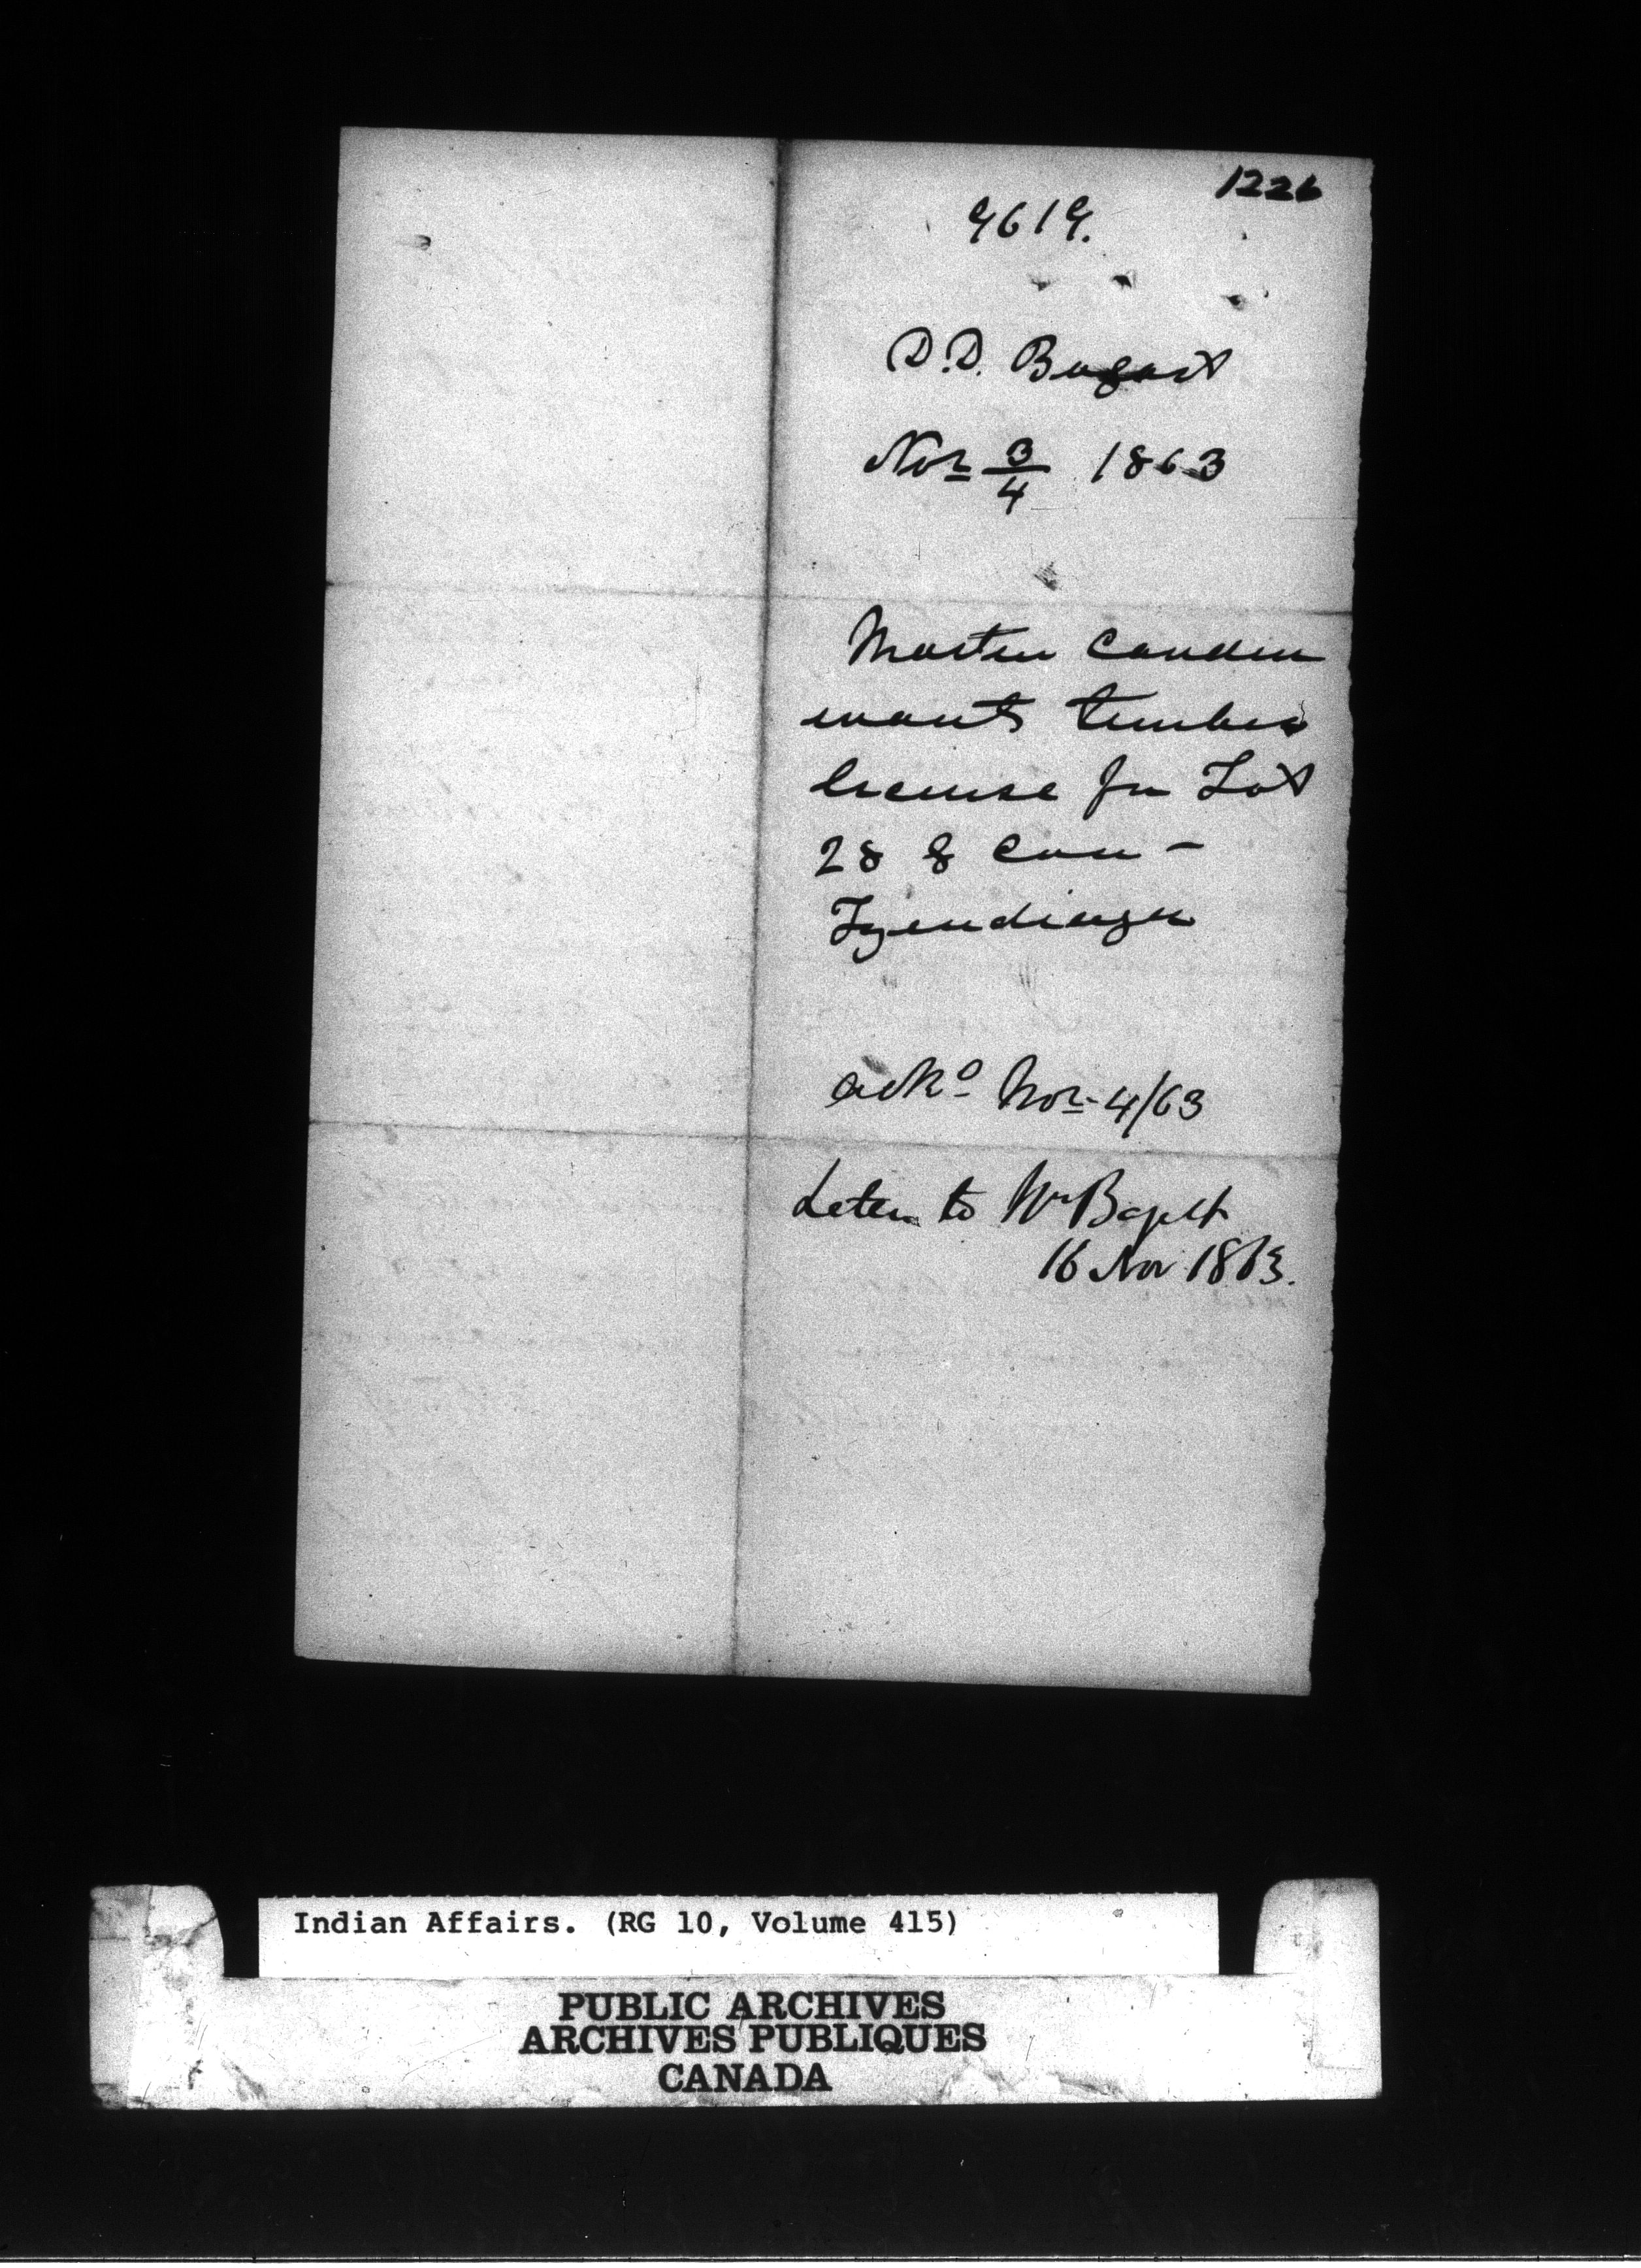 1226
9619.
D.D. Bogart
Nov 3/4 1863
wants timber
license for Lot
28 8 Con -
Tyendinaga
ackd Nov 4/63
Letter to Mr
16 Nov 1863.
Indian Affairs. (RG 10, Volume 415)
PUBLIC ARCHIVES
ARCHIVES PUBLIQUES
CANADA